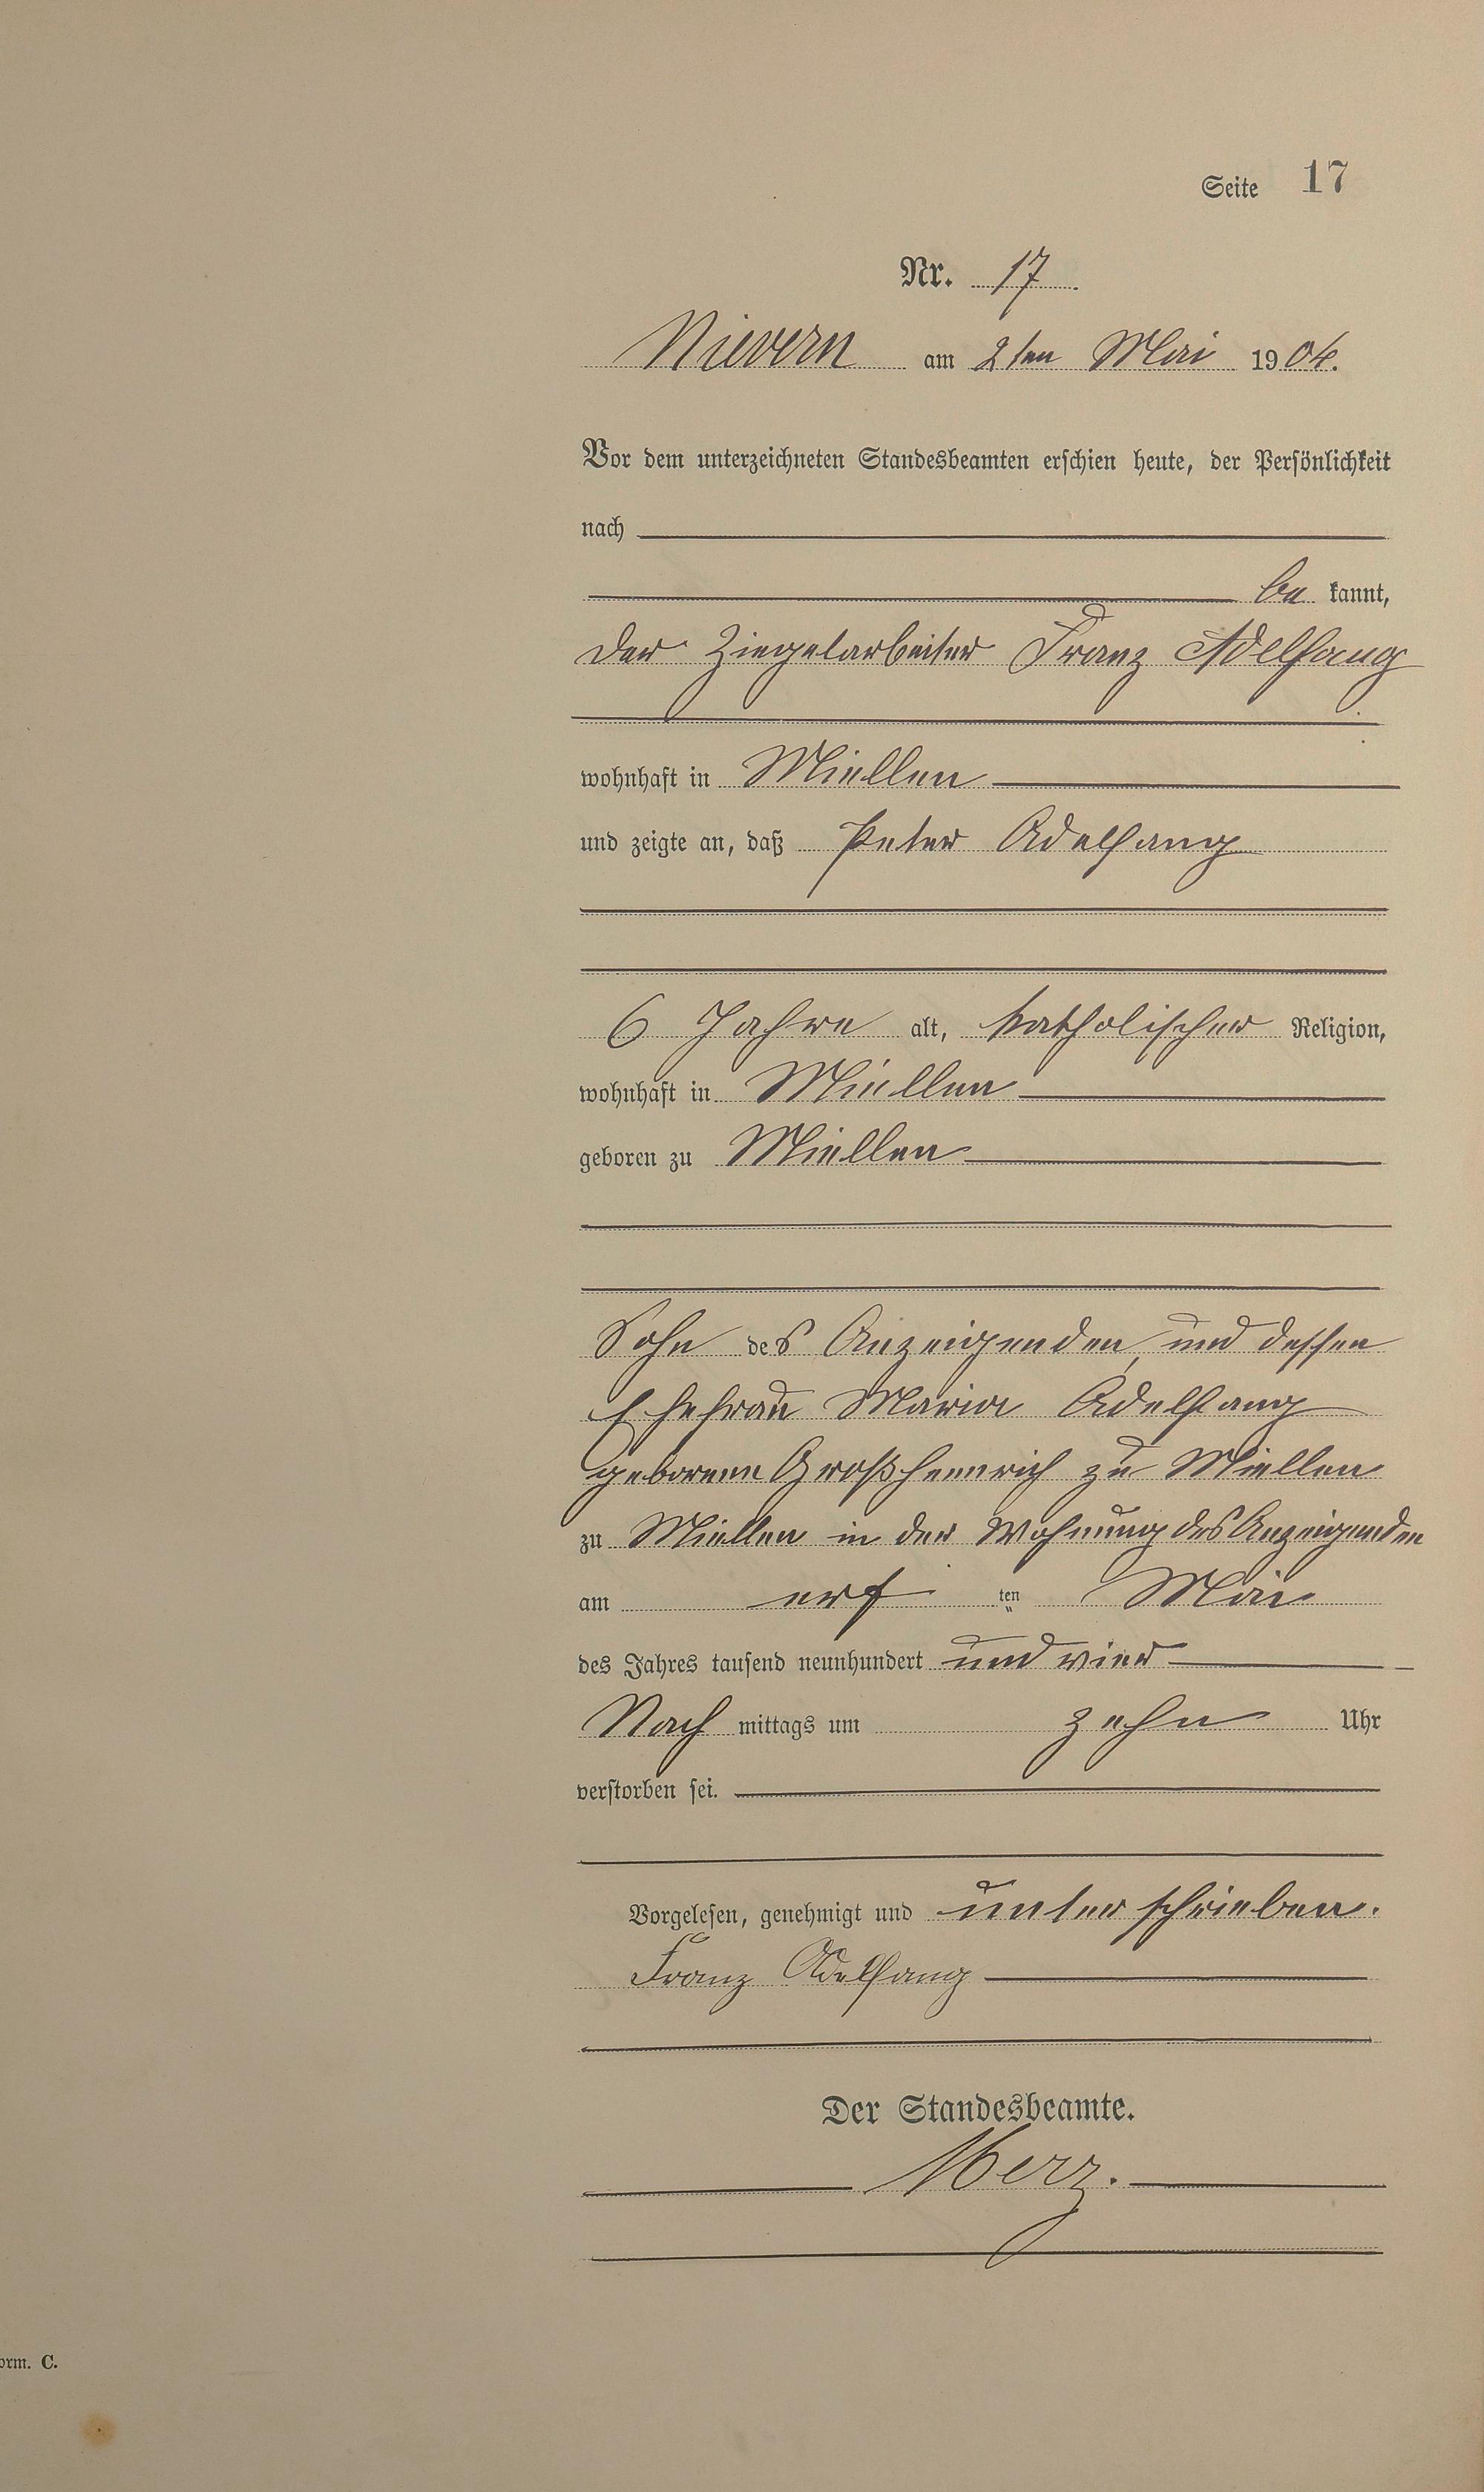 Seite 17
Nr. 17
Nievern am 2ten Mai 1904.
Vor dem unterzeichneten Standesbeamten erschien heute, der Persönlichkeit
nach
be kannt,
der Ziegelarbeiter Franz Adelfang
wohnhaft in Miellen
und zeigte an, daß Peter Adelfang
6 Jahre alt, katholischer Religion,
wohnhaft in Miellen
geboren zu Miellen
Sohn des Anzeigenden, und dessen
Ehefrau Maria Adelfang
geborene Großhennrich zu Miellen
zu Miellen in der Wohnung des Anzeigenden
am ers ten Mai
des Jahres tausend neunhundert und vier
Nach mittags um zehn Uhr
verstorben sei.
Vorgelesen, genehmigt und unterschrieben.
Franz Adelfang
Der Standesbeamte.
Merz.
orm. C.